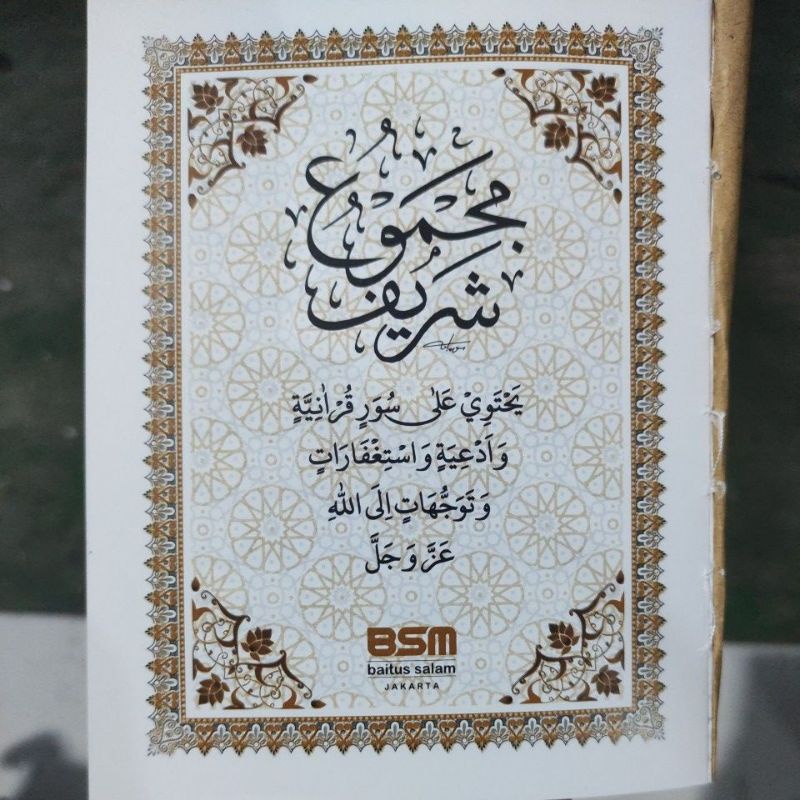 مجموع
شريف
يَحْتَوِيْ عَلَى سُوَرٍ قُرْاٰنِيَّةٍ
وَاَدْعِيَةٍ وَاسْتِغْفَارَاتٍ
وَتَوَجُّهَاتٍ اِلَى اللّٰهِ
عَزَّ وَجَلَّ
BSM
baitus salam
JAKARTA